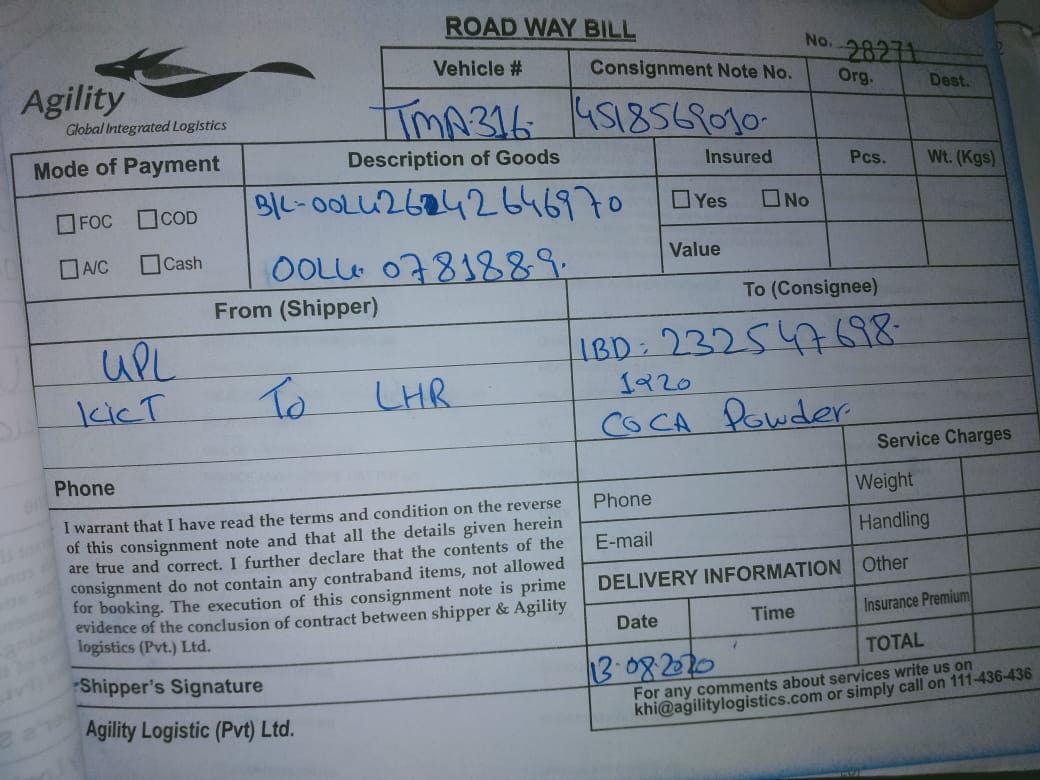 ROAD WAY BILL
No. 28271
Agility
Global Integrated Logistics
Vehicle #
Consignment Note No.
Org.
Dest.
TMA316.
4518569010.
Mode of Payment
Description of Goods
Insured
Pcs.
Wt. (Kgs)
FOC
COD
A/C
Cash
B/L-OOLU26242646970
OOLU. 0781889.
Yes
No
Value
From (Shipper)
To (Consignee)
UPL
KICT To LHR
IBD: 232547698.
1x20
COCA Powder.
Service Charges
Phone
I warrant that I have read the terms and condition on the reverse
of this consignment note and that all the details given herein
are true and correct. I further declare that the contents of the
consignment do not contain any contraband items, not allowed
for booking. The execution of this consignment note is prime
evidence of the conclusion of contract between shipper & Agility
logistics (Pvt.) Ltd.
Phone
E-mail
Weight
Handling
Other
Insurance Premium
TOTAL
DELIVERY INFORMATION
Date
Time
13.08.2020
Shipper's Signature
Agility Logistic (Pvt) Ltd.
For any comments about services write us on
khi@agilitylogistics.com or simply call on 111-436-436